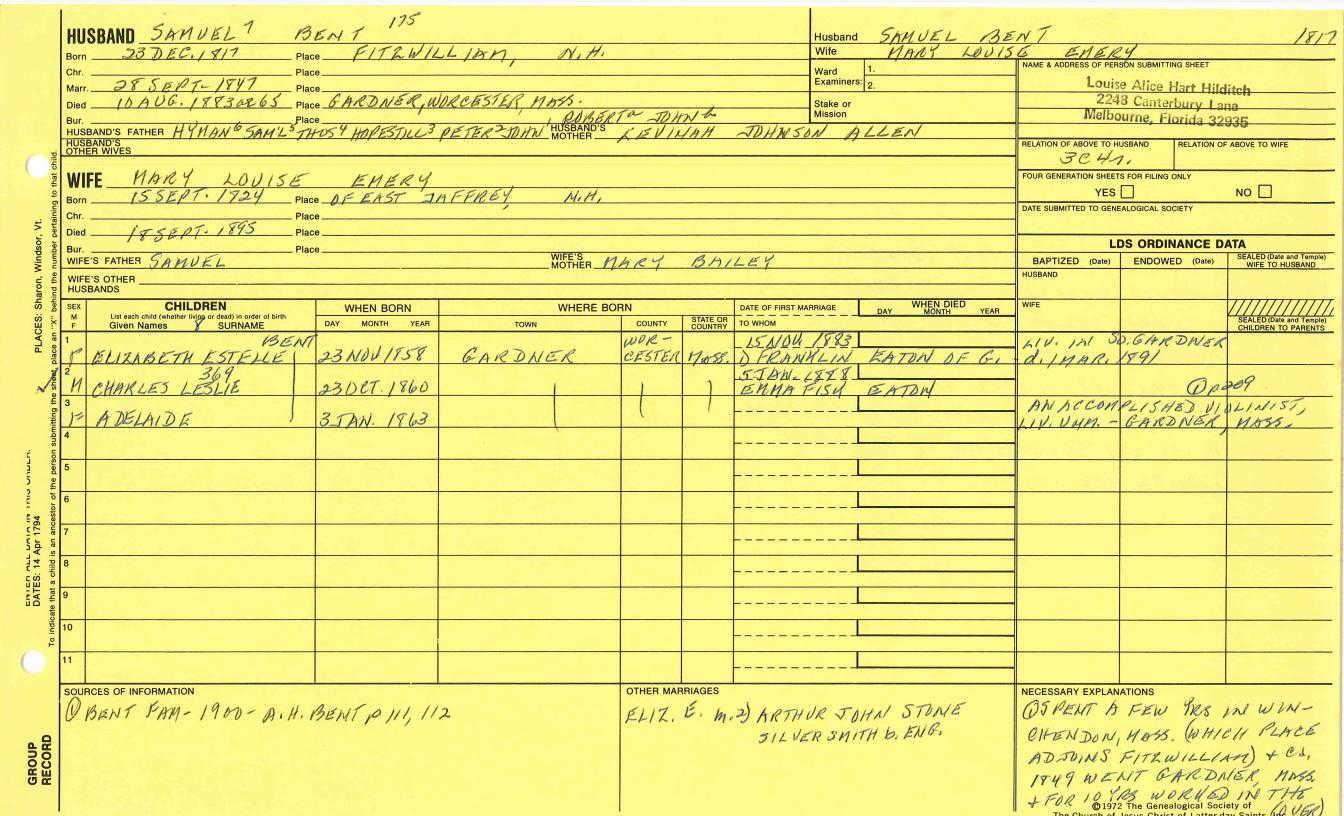 HUSBAND SAMUEL⁷ BENT 175
Born 23 DEC. 1817 Place FITZWILLIAM, N.H.
Chr. Place
Marr. 28 SEPT- 1847 Place
Died 10 AUG. 1883 65 Place GARDNER, WORCESTER, MASS.
Bur. Place
HUSBAND'S FATHER HYMAN⁶ SAM'L⁵ THOS⁴ HOPESTILL³ PETER² JOHN¹ ROBERTᵃ JOHNᵇ HUSBAND'S MOTHER LEVINAH JOHNSON ALLEN
HUSBAND'S OTHER WIVES
Husband SAMUEL BENT 1817
Wife MARY LOUISE EMERY
Ward Examiners: 1.
2.
Stake or Mission
NAME & ADDRESS OF PERSON SUBMITTING SHEET
Louise Alice Hart Hilditch
2248 Canterbury Lane
Melbourne, Florida 32935
RELATION OF ABOVE TO HUSBAND RELATION OF ABOVE TO WIFE
3C4r.
FOUR GENERATION SHEETS FOR FILING ONLY
YES NO
DATE SUBMITTED TO GENEALOGICAL SOCIETY
WIFE MARY LOUISE EMERY
Born 15 SEPT. 1924 Place OF EAST JAFFREY, N.H.
Chr. Place
Died 18 SEPT. 1895 Place
Bur. Place
WIFE'S FATHER SAMUEL WIFE'S MOTHER MARY BAILEY
WIFE'S OTHER HUSBANDS
LDS ORDINANCE DATA
BAPTIZED (Date) ENDOWED (Date) SEALED (Date and Temple) WIFE TO HUSBAND
HUSBAND
WIFE
SEALED (Date and Temple) CHILDREN TO PARENTS
SEX M F CHILDREN WHEN BORN WHERE BORN DATE OF FIRST MARRIAGE WHEN DIED
List each child (whether living or dead) in order of birth
Given Names 8 SURNAME DAY MONTH YEAR TOWN COUNTY STATE OR COUNTRY TO WHOM DAY MONTH YEAR
1 BENT WOR- 15 NOV 1883 LIV. IN SO. GARDNER
F ELIZABETH ESTELLE 23 NOV 1858 GARDNER CESTER MASS. D FRANKLIN EATON OF G. - d. 1 MAR. 1891
2 369 5 JAN. 1888
M CHARLES LESLIE 23 OCT. 1860 EMMA FISK EATON ① p209
3 AN ACCOMPLISHED VIOLINIST,
F ADELAIDE 3 JAN. 1863 LIV. UNM. - GARDNER, MASS.
4
5
6
7
8
9
10
11
SOURCES OF INFORMATION
① BENT FAM- 1900- A.H. BENT p 111, 112
OTHER MARRIAGES
ELIZ. E. m. 2) ARTHUR JOHN STONE
SILVERSMITH b. ENG.
NECESSARY EXPLANATIONS
① SPENT A FEW YRS IN WIN-
CHENDON, MASS. (WHICH PLACE
ADJOINS FITZWILLIAM) + ca.
1849 WENT GARDNER, MASS.
+ FOR 10 YRS WORKED IN THE
(OVER)
©1972 The Genealogical Society of
The Church of Jesus Christ of Latter-day Saints, Inc.
PLACES: Sharon, Windsor, Vt.
To indicate that a child is an ancestor of the person submitting the sheet, place an "X" behind the number pertaining to that child.
ENTER ALL DATA IN THIS ORDER:
DATES: 14 Apr 1794
GROUP RECORD